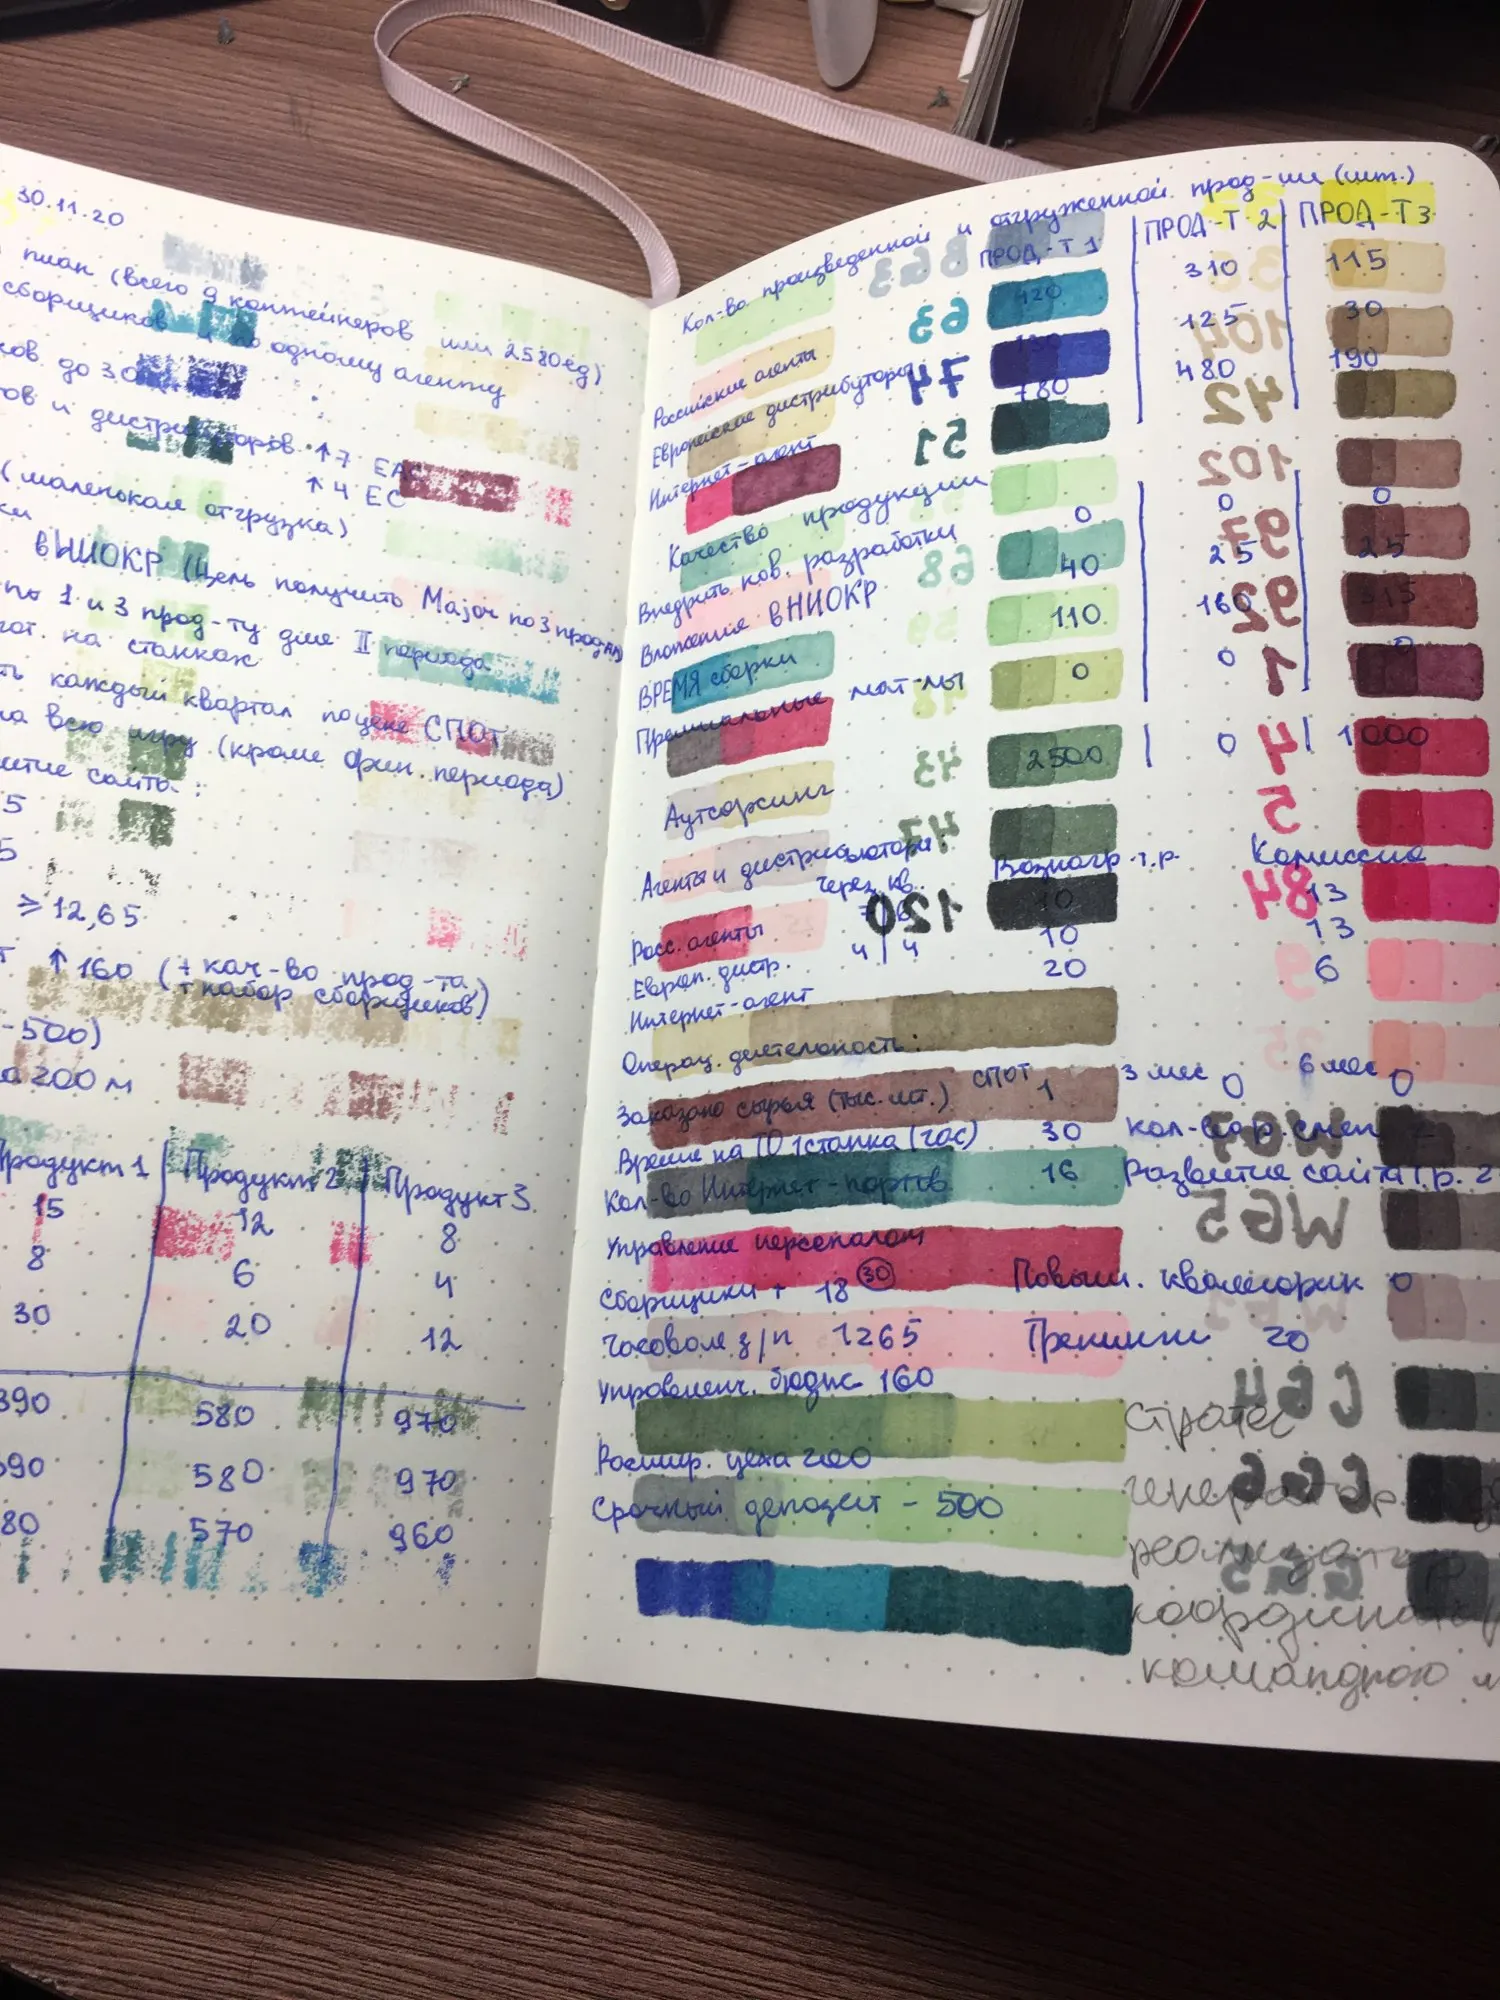 30.11.20
план (всего 9 контейнеров или 2580 ед)
сборщиков и по одному агенту
ков до 30
ов и дистрибьюторов ↑7 ЕА
↑4 ЕС
(маленькая отгрузка)
ки
в НИОКР (Цель получить Major по 3 прод-там)
по 1 и 3 прод-ту для II периода
от. на станках
ть каждый квартал по цене СПОТ
на всю игру (кроме фин. периода)
итие сайта:
5
5
≥ 12,65
↑160 (+ кач-во прод-та,
+ набор сборщиков)
-500)
а 200 м
Продукт 1 Продукт 2 Продукт 3
15 12 8
8 6 4
30 20 12
390 580 970
590 580 970
80 570 960
Кол-во произведенной и отгруженной прод-ии (шт.)
ПРОД-Т 1 ПРОД-Т 2 ПРОД-Т 3
BG3
Российские агенты 420 310 115
63
Европейские дистрибуторы 125 30
104
74
Интернет-агент 780 480 190
42
51
102
Качество продукции 0 0 0
97
Внедрить нов. разработки 40 25 25
68
92
Вложения в НИОКР 110 160 315
59
ВРЕМЯ сборки 0 0 0
1
Премиальные мат-лы 2500 0 1000
43
4
Аутсорсинг
5
47
Агенты и дистрибьюторы Вознагр. т.р. Комиссия
через кв.
84
120
Росс. агенты 10 13
Европ. дистр. 4 4 10 13
9
Интернет-агент 20 6
Операц. деятельность:
СПОТ 3 мес 6 мес
Заказано сырья (тыс. шт.) 1 0 0
Время на ТО 1 станка (час) 30 кол-во р. смен
Кол-во Интернет-портов 16 Развитие сайта т.р. 2
WG5
Управление персоналом
Сборщики + 18 (30) Повыш. квалифик 0
Часовая з/п 1265 Тренинги 20
Управленч. бюдж 160
CG4
Стратег
Расшир. цеха 200
CG6
генератор
Срочный депозит - 500
реализатор
CG5
координатор
командного